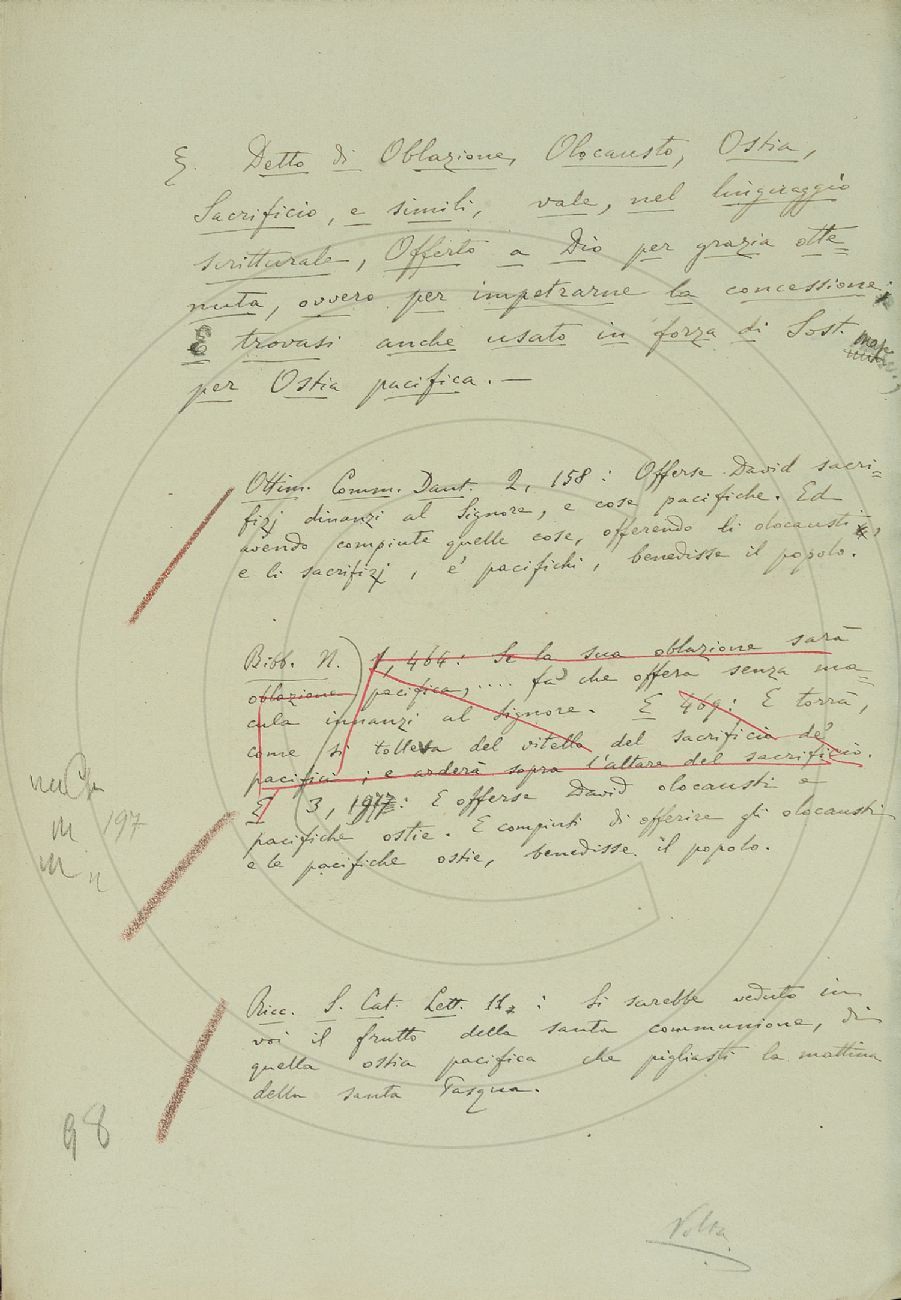 ξ. Detto di Oblazione, Olocausto, Ostia,
Sacrificio, e simili, vale, nel linguaggio
scritturale, Offerto a Dio per grazia otte=
nuta, ovvero per impetrarne la concessione;
E trovasi anche usato in forza di Sost.
per Ostia pacifica. —
Ottim. Comm. Dant. 2, 158: Offerse David sacri=
fizj dinanzi al Signore, e cose pacifiche. Ed
avendo compiute quelle cose, offerendo li olocausti,
e li sacrifizj, e' pacifichi, benedisse il popolo.
Bibb. N. 1, 464: Se la sua oblazione sarà
oblazione pacifica, .... fa che offera senza ma=
cula innanzi al Signore. E 469: E torrà,
come si tolleva del vitello del sacrificio de'
pacifici; e arderà sopra l'altare del sacrificio.
E 3, 197: E offerse David olocausti e
pacifiche ostie. E compiuti di offerire gli olocausti
e le pacifiche ostie, benedisse il popolo.
197
Ricc. S. Cat. Lett. 11: Si sarebbe veduto in
voi il frutto della santa communione, di
quella ostia pacifica che pigliasti la mattina
della santa Pasqua.
98
Volta